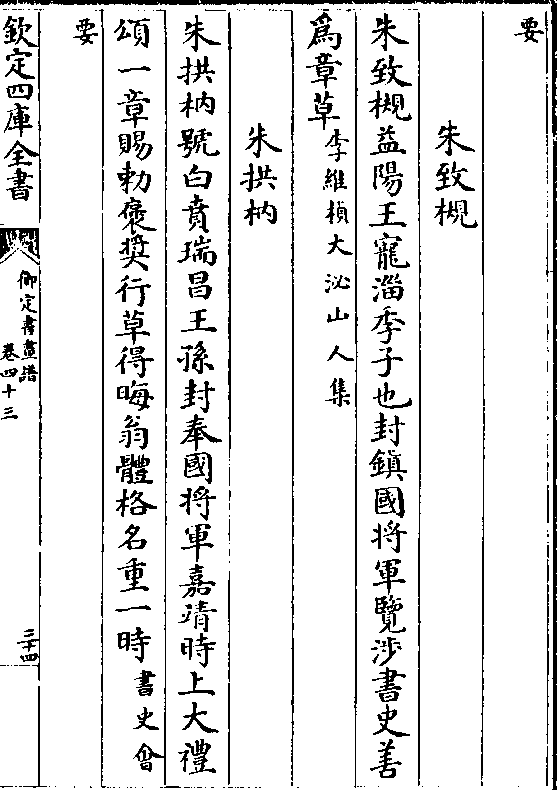 要
朱致槻
朱致槻益陽王寵淄季子也封鎮國將軍覽涉書史善
爲章草李維楨大泌山人集
朱拱枘
朱拱枘號白賁瑞昌王孫封奉國將軍嘉靖時上大禮
頌一章賜勅褒奬行草得晦翁體格名重一時書史㑹
要
欽定四庫全書
御定書畫譜
卷四十三
三十四